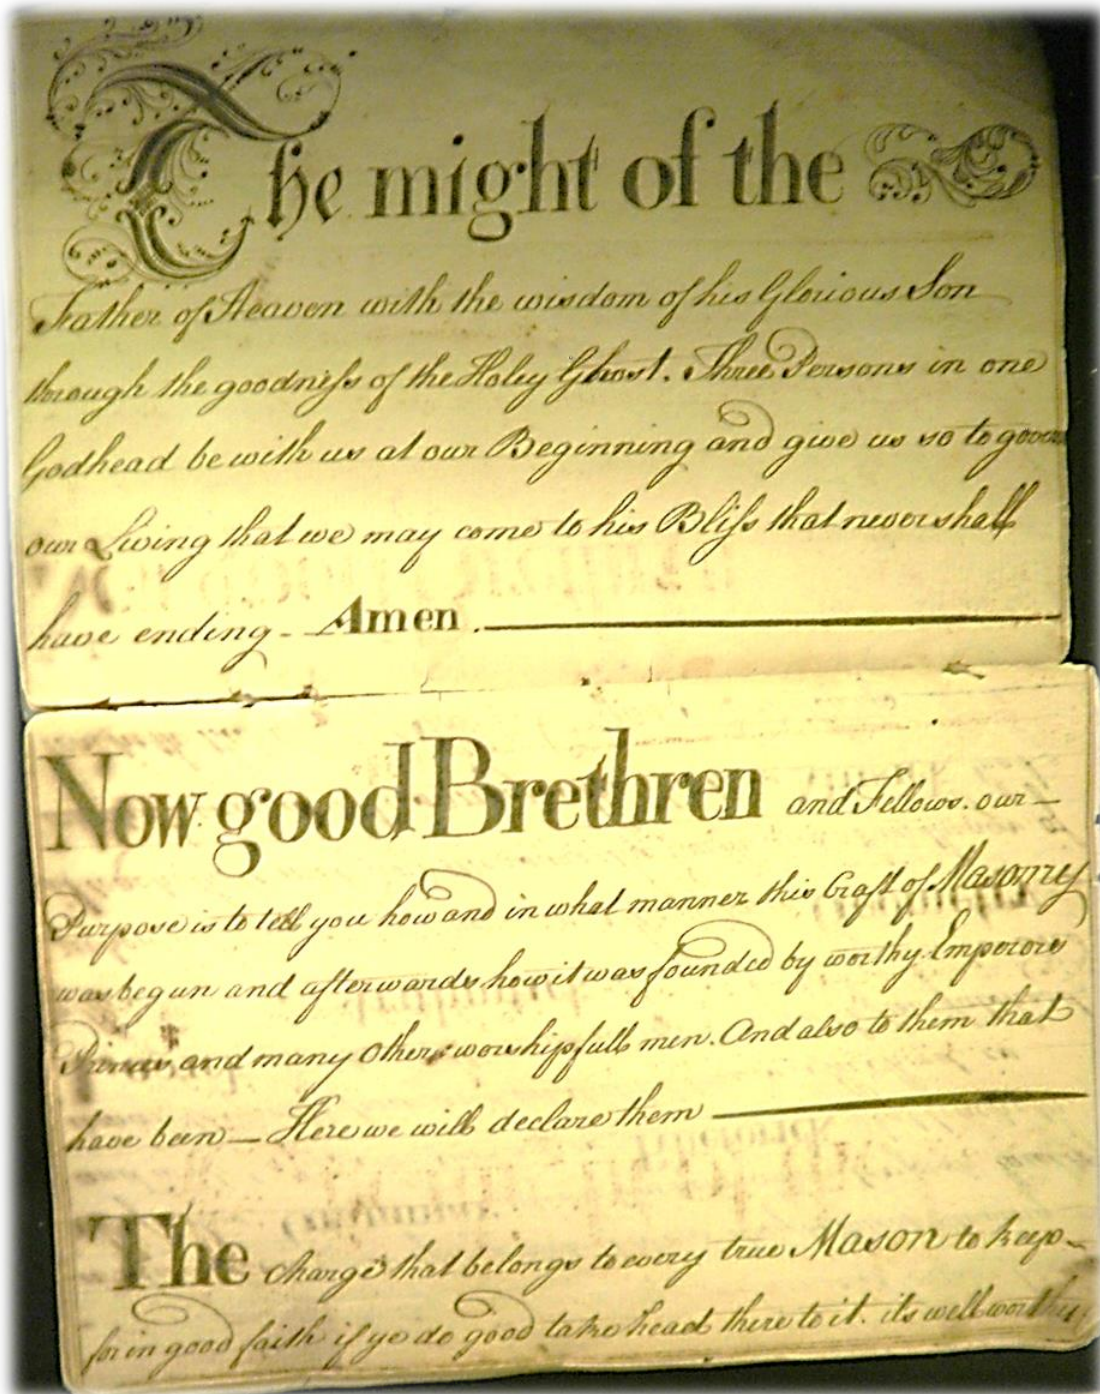 The might of the
Father of Heaven with the wisdom of his Glorious Son
through the goodneſs of the Holey Ghost. Three Persons in one
Godhead be with us at our Beginning and give us so to govern
our Living that we may come to his Bliſs that never shall
have ending - Amen.
Now good Brethren and Fellows. our
Purpose is to tell you how and in what manner this Craft of Masonry
was begun and afterwards how it was founded by worthy Emperors
Princes and many other worshipfull men. And also to them that
have been — Here we will declare them
The charge that belongs to every true Mason to keep
for in good faith if ye do good take head there to it. its well worthy